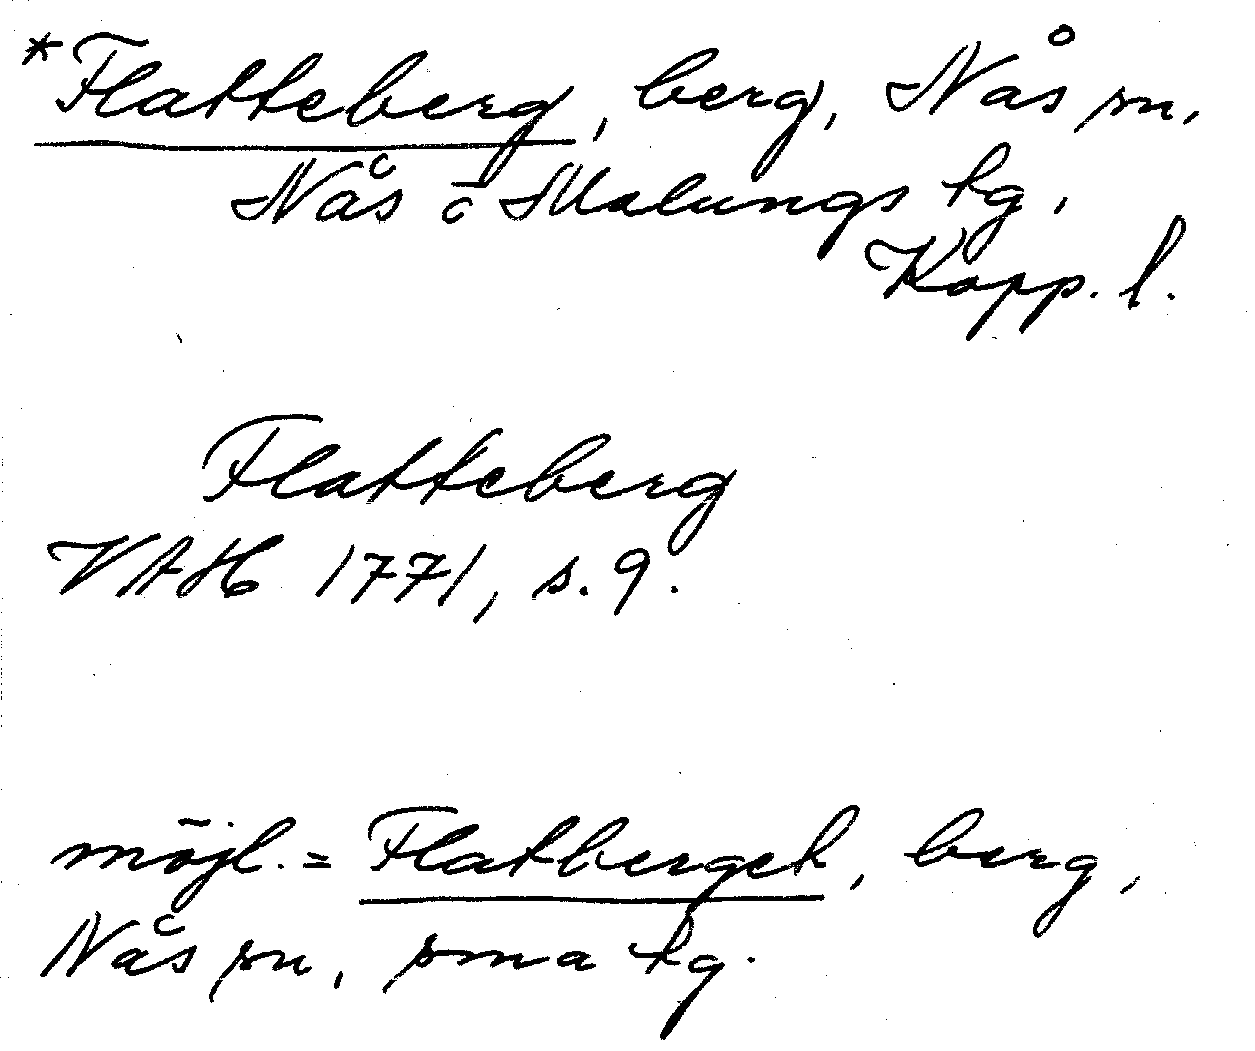 *Flatteberg, berg, Nås sn,
Nås o Malungs tg,
Kopp. l.
Flatteberg
VAH 1771, s. 9.
möjl. = Flatberget, berg,
Nås sn, sma tg.